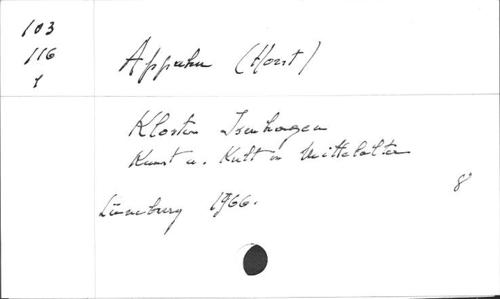 103
116
1
Appuhn (Horst)
Kloster Isenhagen
Kunst u. Kult in Mittelalter
Lüneburg 1966.
8°